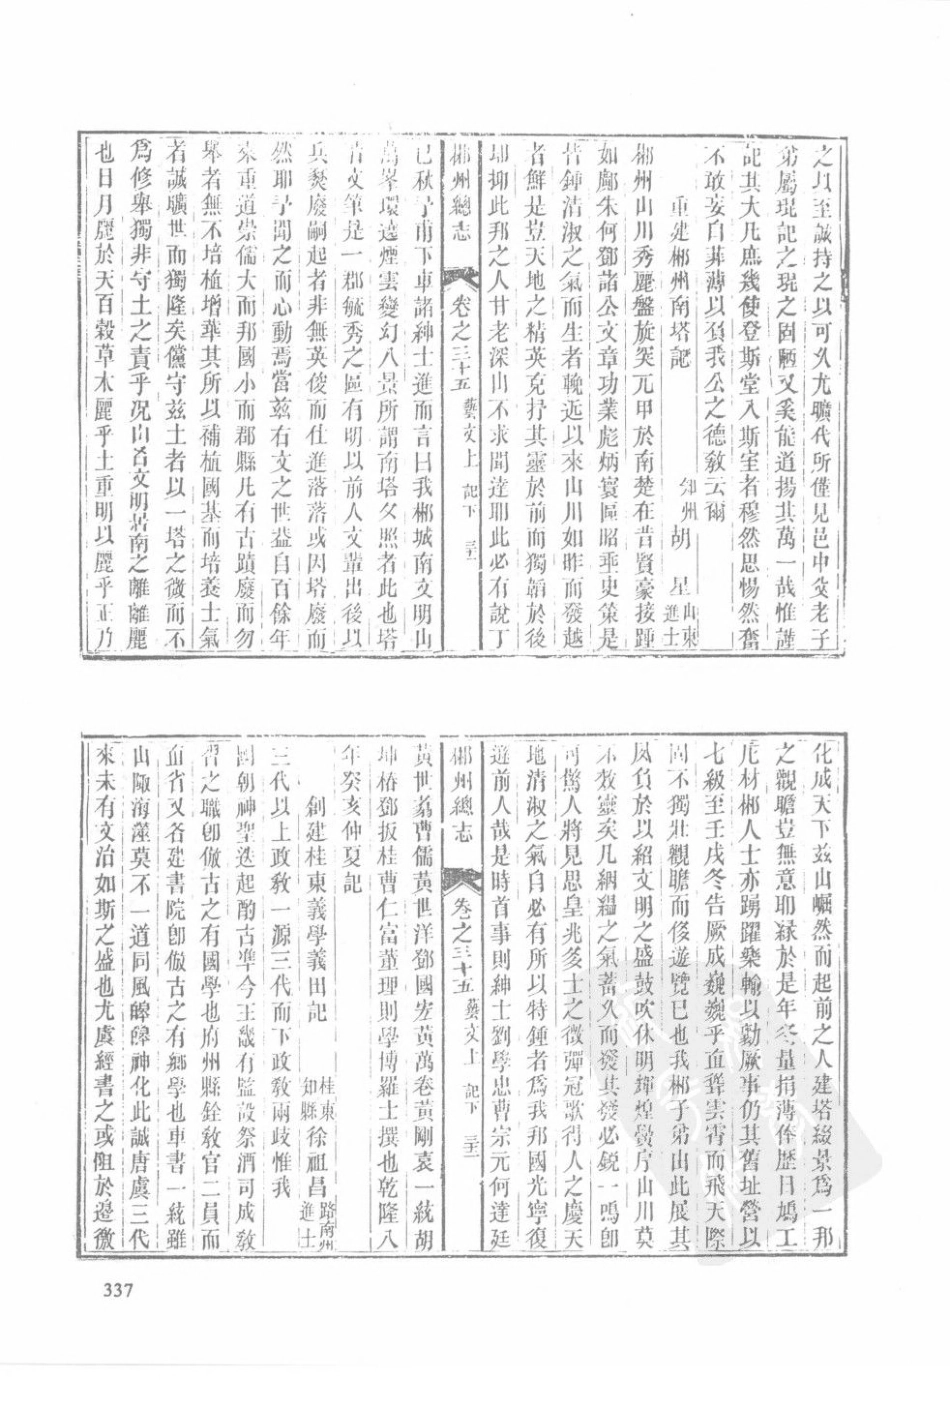 之以至誠持之以可久尤曠代所僅見邑中父老子
弟屬琨記之琨之固陋又奚能道揚其萬一哉惟謹
記其大凡庶幾使登斯堂入斯室者穆然思惕然奮
不敢妄自菲薄以負我公之德敎云爾
重建郴州南塔記 知州 胡 星 山東進士
郴州山川秀麗盤旋突兀甲於南楚在昔賢豪接踵
如鄺朱何鄧諸公文章功業彪炳寰區昭乖史策是
昔鍾淸淑之氣而生者輓近以來山川如昨而發越
者鮮是豈天地之精英克抒其靈於前而獨韜於後
耶抑此邦之人甘老深山不求聞達耶此必有說丁
郴州總志 卷之三十五 藝文上 記下 三十一
已秋予甫下車諸紳士進而言曰我郴城南文明山
萬峯環遶煙雲變幻八景所謂南塔夕照者此也塔
肖文筆是一郡毓秀之區有明以前人文輩出後以
兵燹廢嗣起者非無英俊而仕進落落或因塔廢而
然耶予聞之而心動焉當茲右文之世益自百餘年
來重道崇儒大而邦國小而郡縣凡有古蹟廢而勿
舉者無不培植增華其所以補植國基而培養士氣
者誠曠世而獨隆矣儻守兹土者以一塔之微而不
爲修舉獨非守土之責乎況山名文明居南之離離麗
也日月麗於天百穀草木麗乎土重明以麗乎正乃
化成天下玆山崛然而起前之人建塔綴景爲一邦
之觀瞻豈無意耶緣於是年冬量捐薄俸歴日鳩工
庀材郴人士亦踴躍樂輸以勷厥事仍其舊址營以
七級至壬戌冬告厥成巍巍乎直聳雲霄而飛天際
固不獨壯觀瞻而侈遊覽已也我郴子弟由此展其
夙負於以紹文明之盛鼓吹休明輝煌黌序山川莫
不效靈矣凡絪縕之氣蓄久而發其發必銳一鳴卽
可驚人將見思皇兆多士之徵彈冠歌得人之慶天
地淸淑之氣自必有所以特鍾者爲我邦國光寧復
遜前人哉是時首事則紳士劉學忠曹宗元何達廷
郴州總志 卷之三十五 藝文上 記下 三十二
黃世翥曹儒黃世洋鄧國宏黃萬卷黃剛衷一統胡
坤椿鄧扳桂曹仁富董理則學博羅士撰也乾隆八
年癸亥仲夏記
創建桂東義學義田記 桂東知縣 徐祖昌 路南州進士
三代以上政敎一源三代而下政敎兩歧惟我
國朝神聖迭起酌古凖今王畿有監設祭酒司成敎
習之職卽倣古之有國學也府州縣銓敎官二員而
直省又各建書院卽倣古之有鄕學也車書一統雖
山陬海澨莫不一道同風皥皥神化此誠唐虞三代
來未有文治如斯之盛也尤虞經書之或阻於邊徼
337